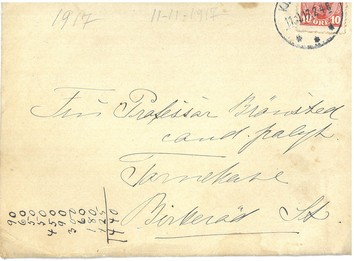 1917 11-11-1917
10 ØRE 10
Fru Professor Brønsted
cand. polyt
Tornekase
Birkerød St
90
60
50
50
450
90
300
60
180
125
1440